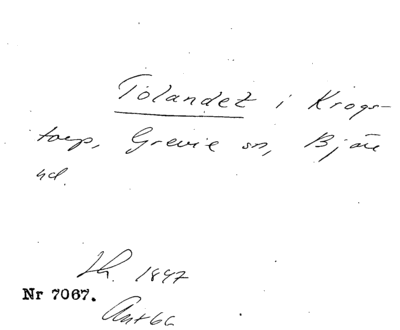 Tolandet i Krogs-
torp, Grevie sn, Bjäre
hd.
1847
Nr 7067.